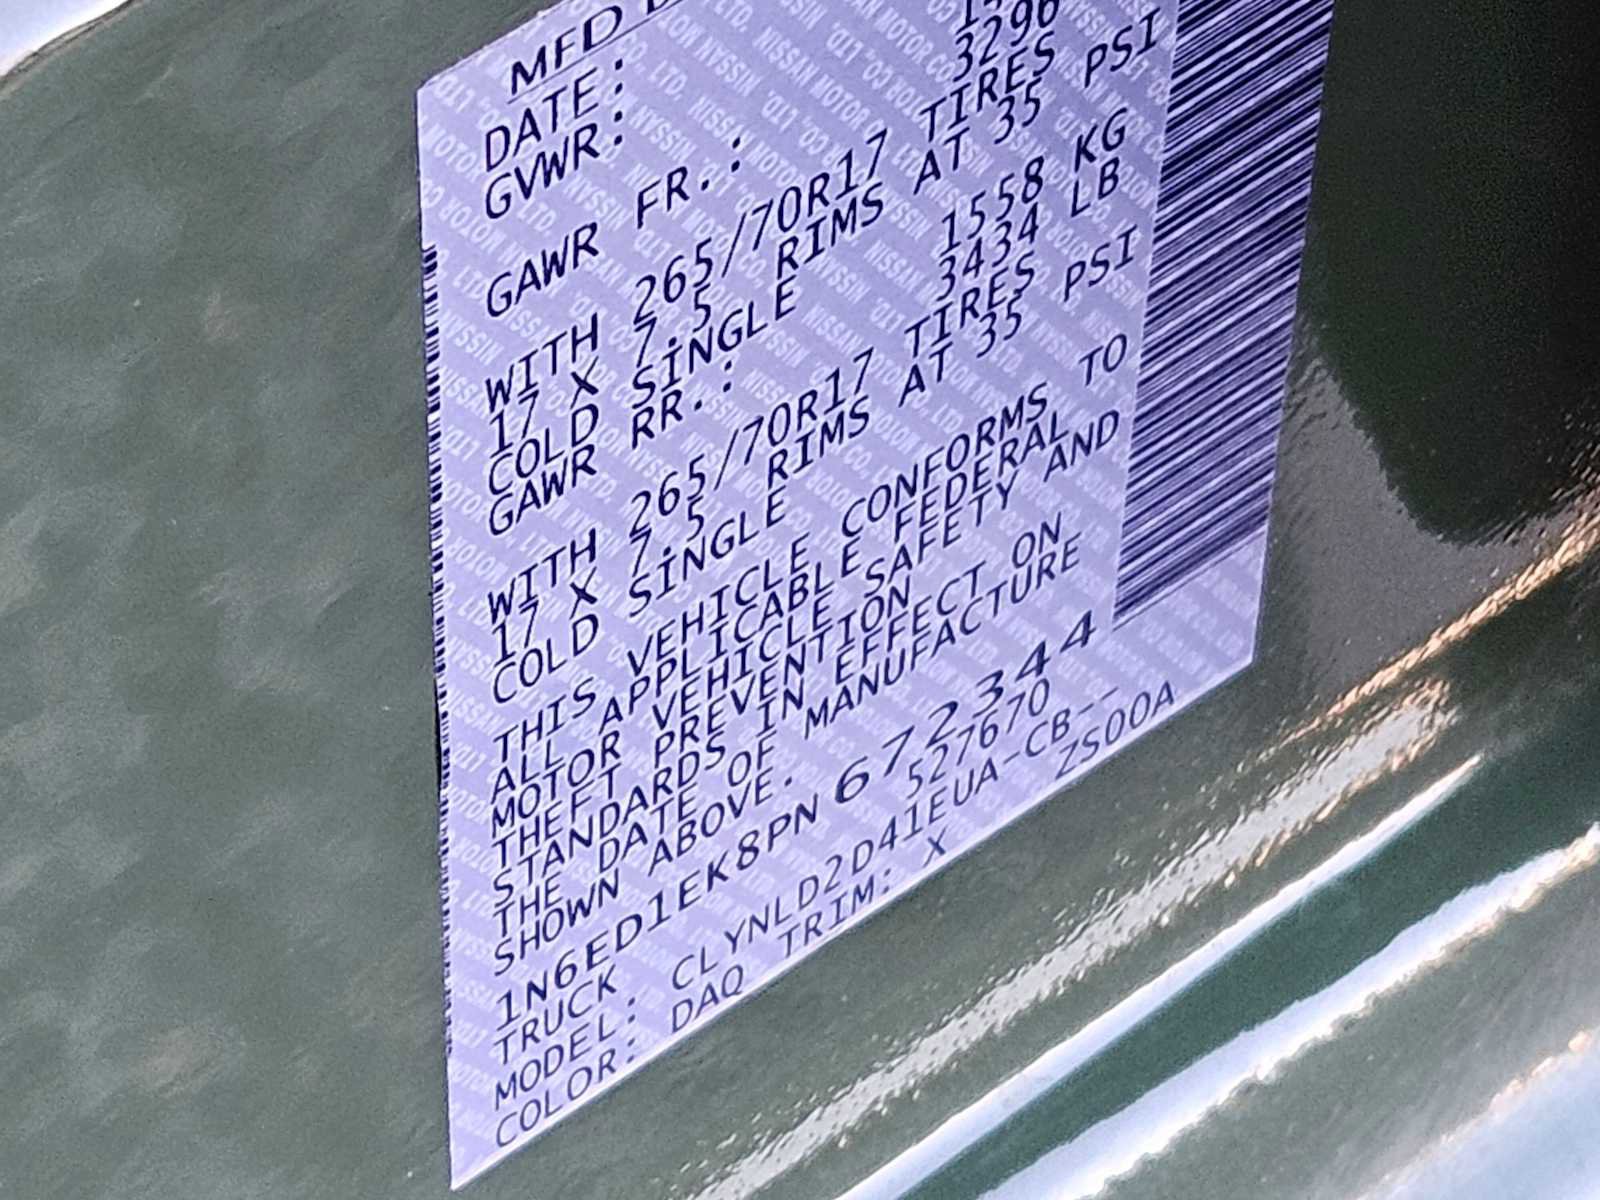 MFD
DATE:
GVWR:
GAWR FR.:
3296
WITH 265/70R17 TIRES
17 X 7.5 RIMS AT 35 PSI
COLD SINGLE
GAWR RR.: 1558 KG
3434 LB
WITH 265/70R17 TIRES
17 X 7.5 RIMS AT 35 PSI
COLD SINGLE
THIS VEHICLE CONFORMS TO
ALL APPLICABLE FEDERAL
MOTOR VEHICLE SAFETY AND
THEFT PREVENTION
STANDARDS IN EFFECT ON
THE DATE OF MANUFACTURE
SHOWN ABOVE.
1N6ED1EK8PN 672344
TRUCK 527670
MODEL: CLYNLD2D41EUA-CB--
COLOR: DAQ TRIM: X ZS00A